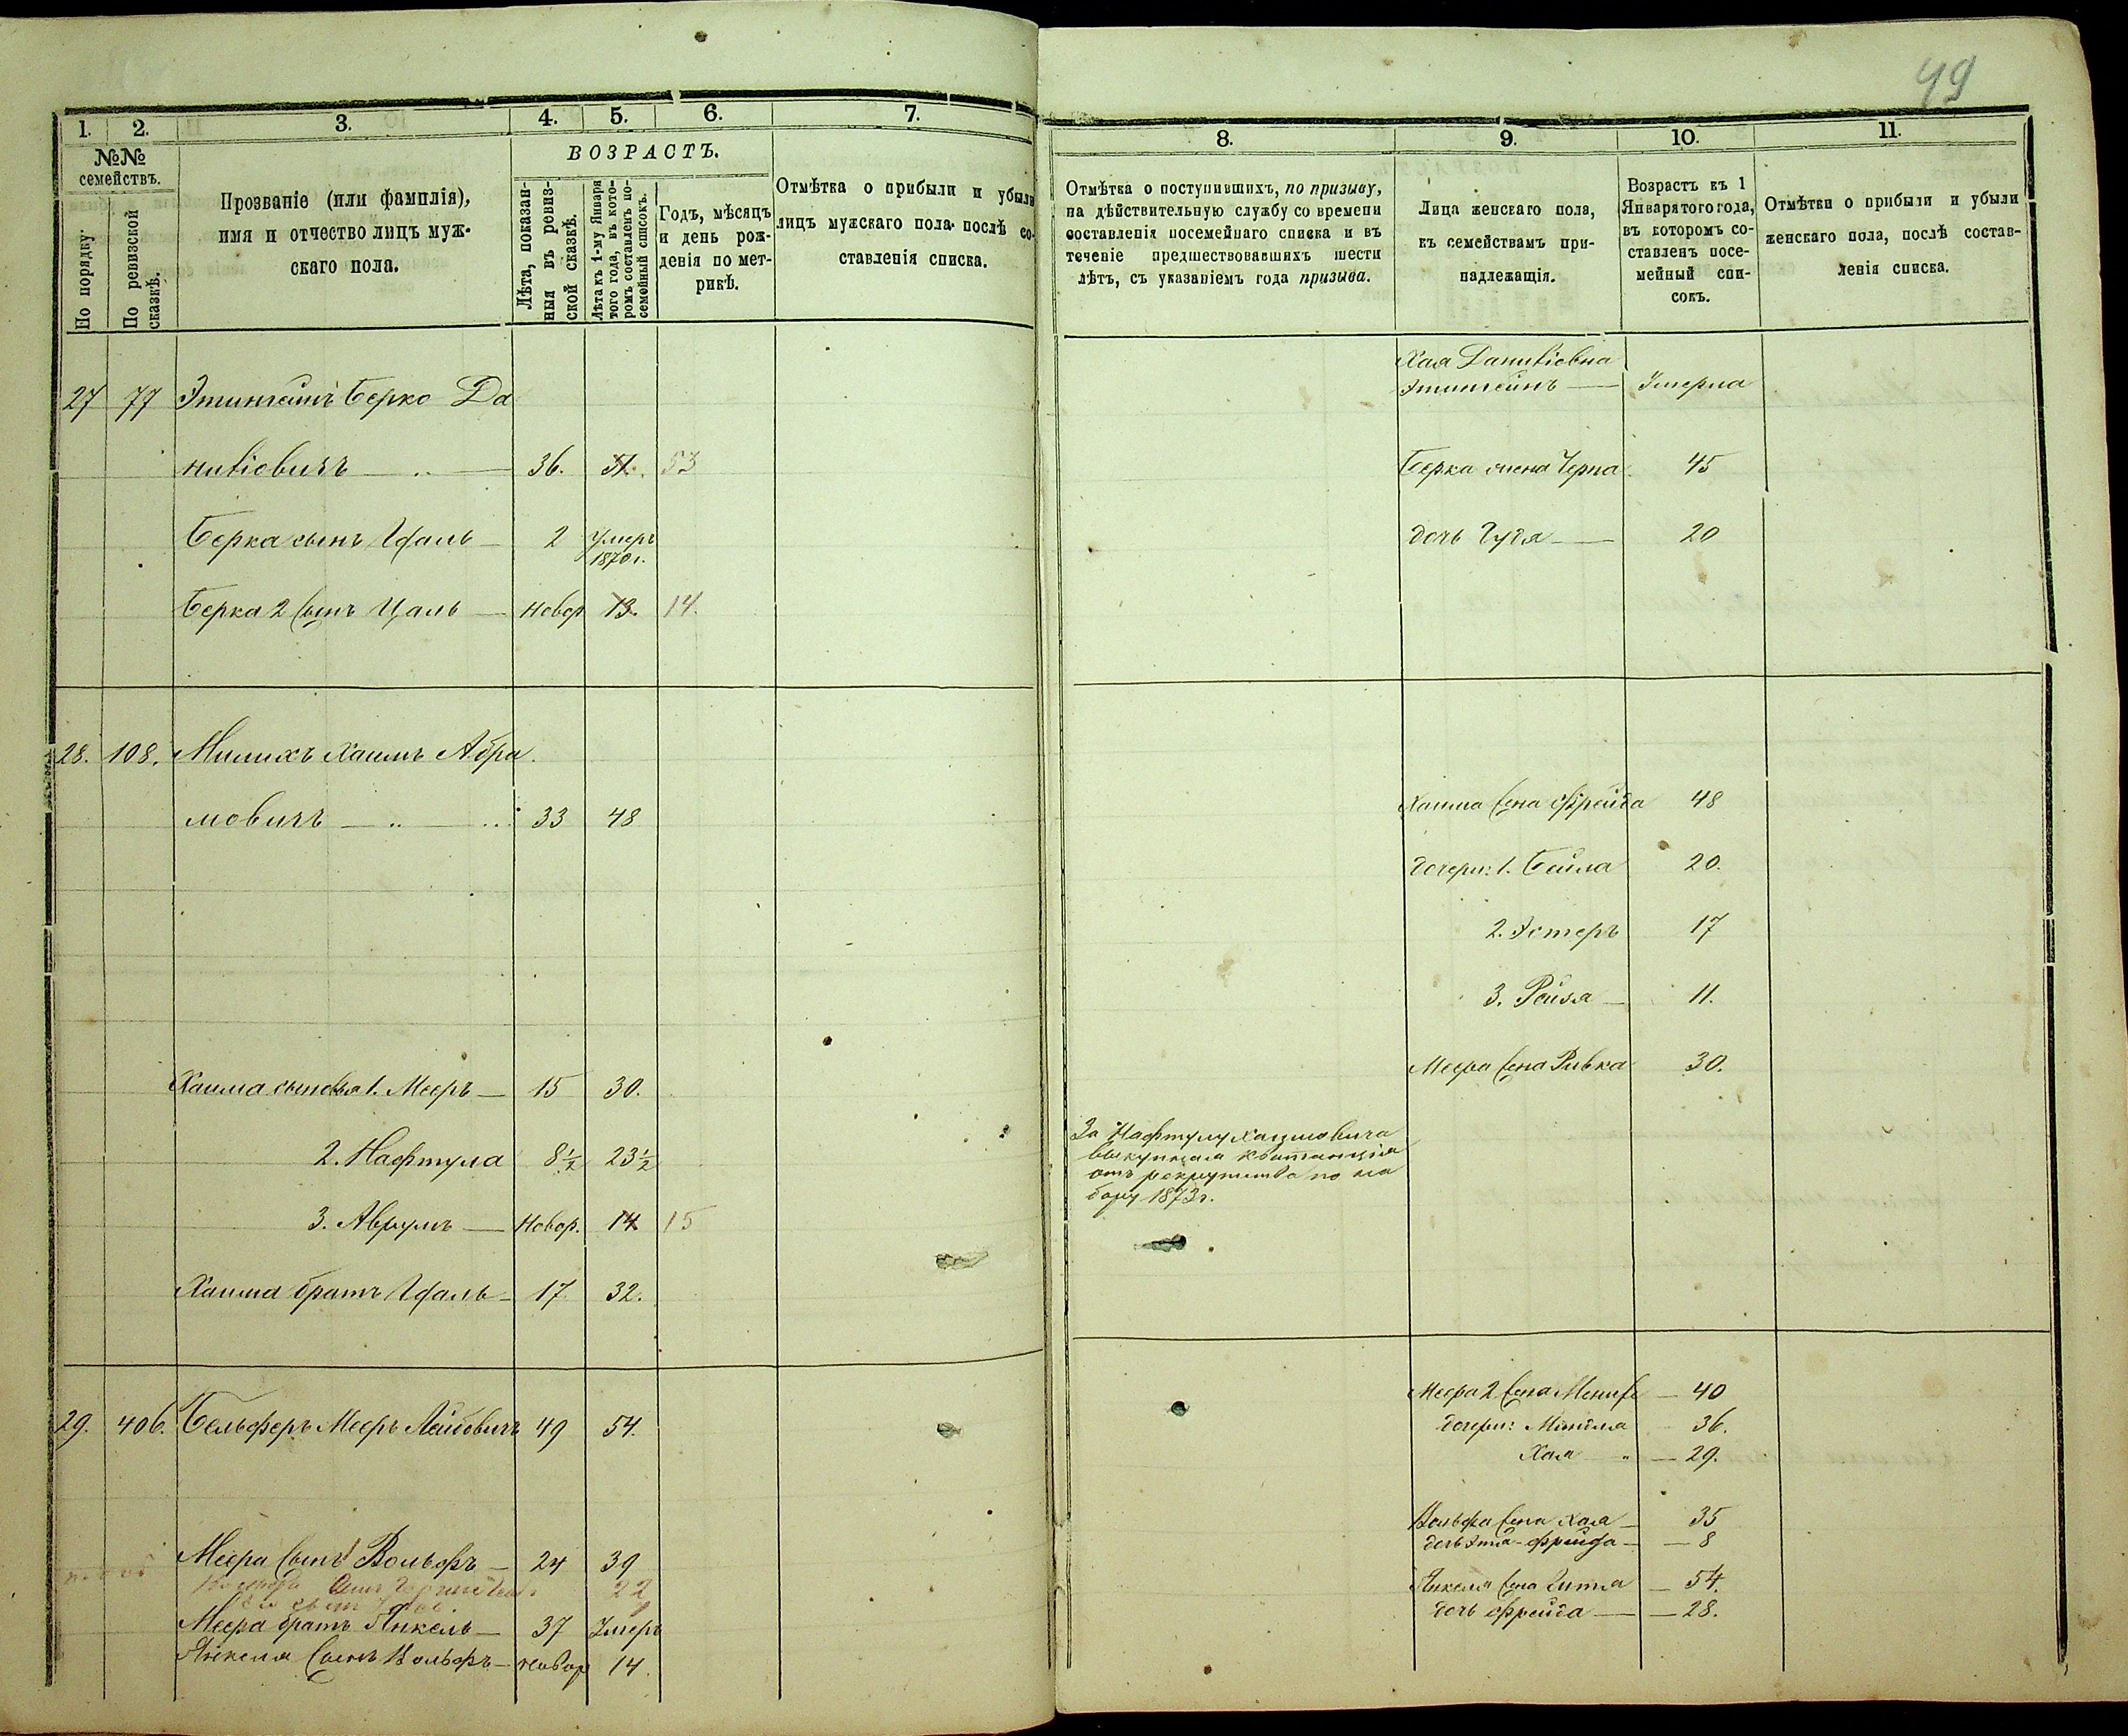 49
1. 2. 3. 4. 5. 6. 7.
№№ семействъ.
По порядку.
По ревизской сказкѣ.
Прозваніе (или фамилія),
имя и отчество лицъ муж-
скаго пола.
ВОЗРАСТЪ.
Лѣта, показан-
ныя въ ревиз-
ской сказкѣ.
Лѣта къ 1-му Января
того года, въ кото-
ромъ составленъ по-
семейный списокъ.
Годъ, мѣсяцъ
и день рож-
денія по мет-
рикѣ.
Отмѣтка о прибыли и убыли
лицъ мужскаго пола послѣ со-
ставленія списка.
27 77 Этингеинъ Берко Да
нилiовичъ 36. 51. 53
Берка сынъ Ицаль 2 Умеръ
1870 г.
Берка 2 сынъ Цаль Новор 13. 14.
28. 108. Милихъ Хаимъ Абра
мовичъ 33 48
Хаима сыновья 1. Мееръ 15 30.
2. Нафтула 8½ 23½
3. Аврумъ Новор. 14 15
Хаима братъ Ицаль 17 32.
29. 406. Бельферъ Мееръ Лейбовичъ 49 54.
Меера сынъ Вольфъ 24 39
22
Меера братъ Янкель 37 Умеръ
Янкеля сынъ Вольфъ новор 14.
8. 9. 10. 11.
Отмѣтка о поступившихъ, по призыву,
на дѣйствительную службу со времени
составленія посемейнаго списка и въ
теченіе предшествовавшихъ шести
лѣтъ, съ указаніемъ года призыва.
Лица женскаго пола,
къ семействамъ при-
надлежащія.
Возрастъ къ 1
Января того года,
въ которомъ со-
ставленъ посе-
мейный спи-
сокъ.
Отмѣтки о прибыли и убыли
женскаго пола, послѣ состав-
ленія списка.
Хая Данилiовна
Этингеинъ Умерла
Берка жена Черна 45
дочь Гудя 20
Хаима жена Фрейда 48
дочери: 1. Бейла 20.
2. Эстеръ 17
3. Рейзя 11.
Меера жена Ривка 30.
За Нафтулу Хаимовича
выкуплена квитанція
отъ рекрутства по на
бору 1873 г.
Меера 2 жена 40
дочери: 36.
Хая 29.
Вольфа жена Хая 35
дочь Эта-Фрейда 8
Янкеля жена 54.
дочь Фрейда 28.